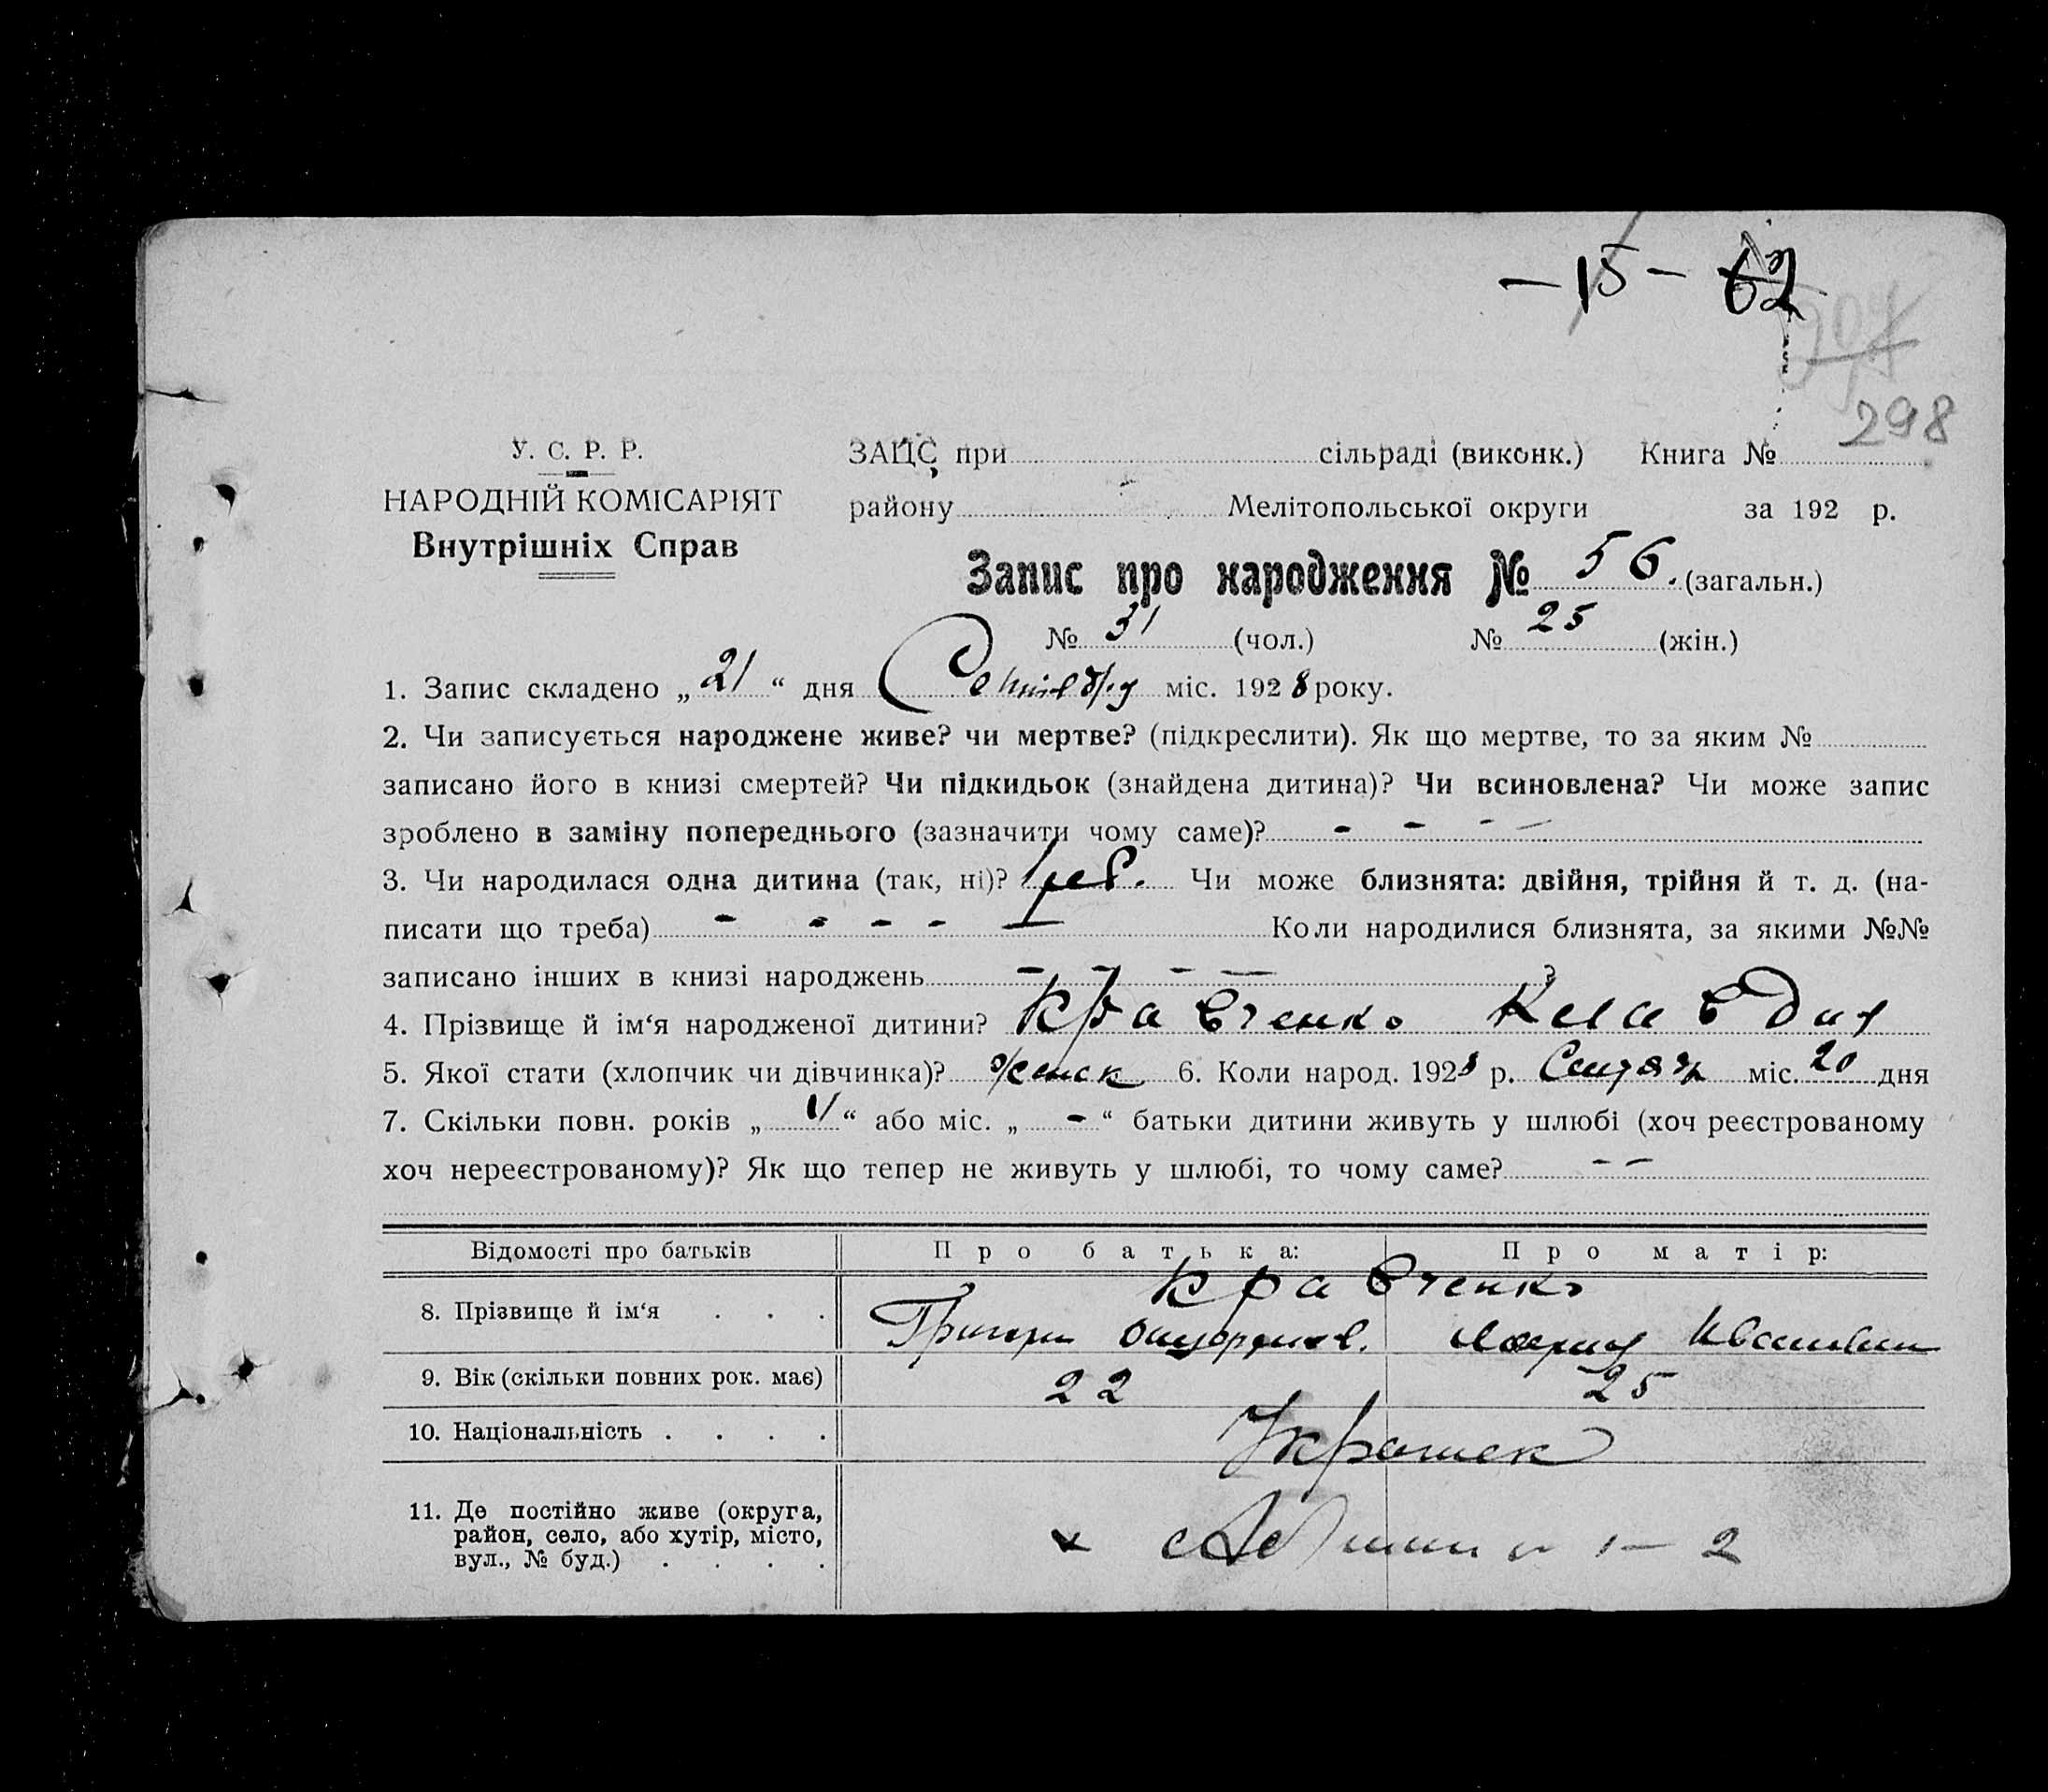 - 15 - 62
298
У. С. Р. Р.
НАРОДНІЙ КОМІСАРІЯТ
Внутрішніх Справ
ЗАЦС при сільраді (виконк.) Книга №
району Мелітопольської округи за 192 р.
Запис про народження № 56. (загальн.)
№ 31 (чол.) № 25 (жін.)
1. Запис складено „ 21 “ дня Сентября міс. 1928 року.
2. Чи записується народжене живе? чи мертве? (підкреслити). Як що мертве, то за яким №
записано його в книзі смертей? Чи підкидьок (знайдена дитина)? Чи всиновлена? Чи може запис
зроблено в заміну попереднього (зазначити чому саме)? - - - -
3. Чи народилася одна дитина (так, ні)? 1 реб. Чи може близнята: двійня, трійня й т. д. (на-
писати що треба) - - - - - Коли народилися близнята, за якими №№
записано інших в книзі народжень - - - - ?
4. Прізвище й ім‘я народженої дитини? Кравченко Клавдия
5. Якої стати (хлопчик чи дівчинка)? женск 6. Коли народ. 1928 р. міс. 20 дня
7. Скільки повн. років „ “ або міс. „ - “ батьки дитини живуть у шлюбі (хоч реєстрованому
хоч нереєстрованому)? Як що тепер не живуть у шлюбі, то чому саме? - -
Відомості про батьків Про батька: Про матір:
Кравченко
8. Прізвище й ім‘я . . . Григори
9. Вік (скільки повних рок. має) 22 25
10. Національність . . . .
11. Де постійно живе (округа,
район, село, або хутір, місто,
вул., № буд.) . . . .